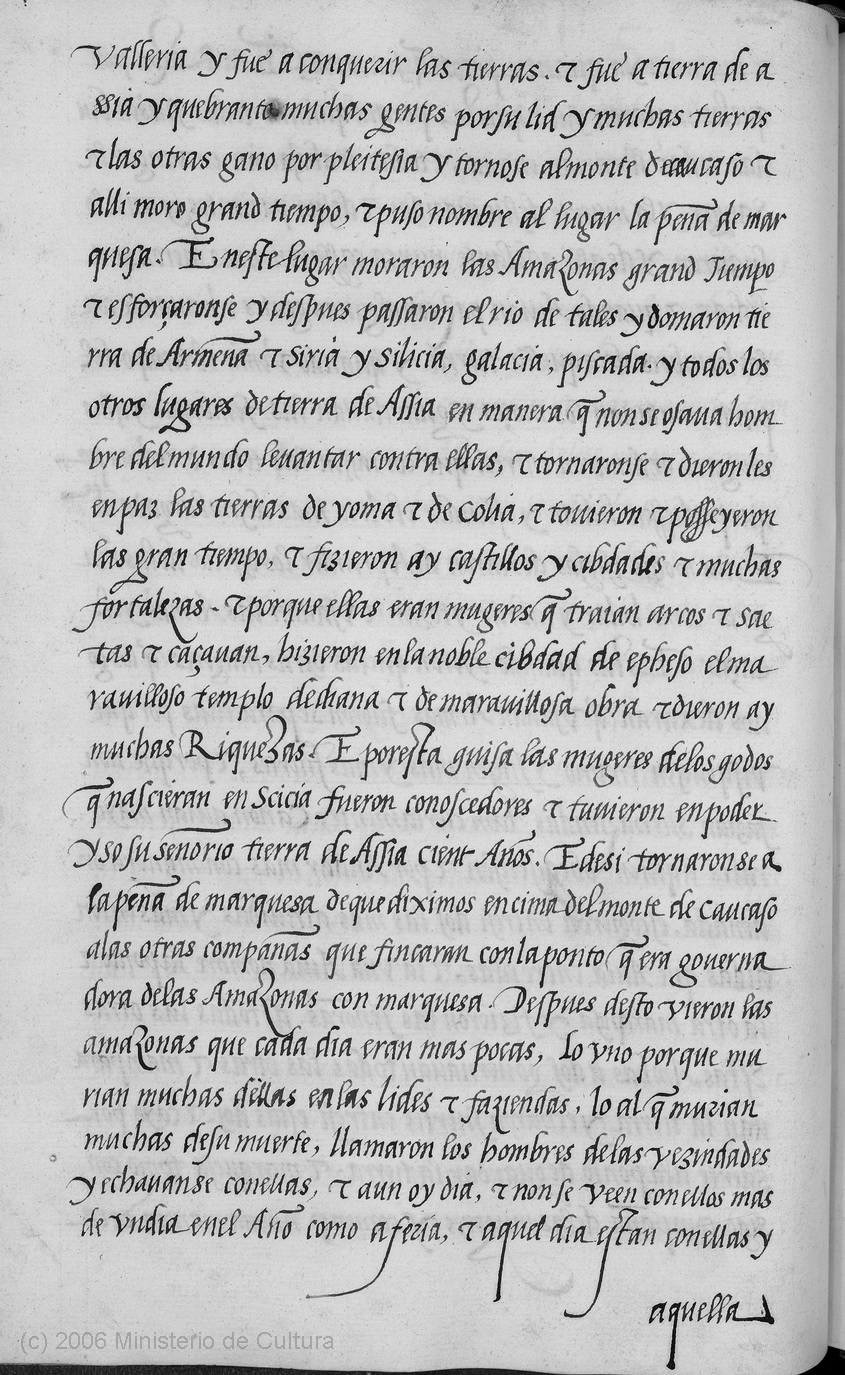 valleria y fue a conquerir las tierras. τ fue a tierra de a
ssia y quebranto muchas gentes por su lid y muchas tierras
τ las otras gano por pleitesia y tornose al monte de caucaso τ
alli moro grand tiempo, τ puso nombre al lugar la peña de mar
quesa. En este lugar moraron las Amazonas grand Tiempo
τ esforçaronse y despues passaron el rio de tales y domaron tie
rra de Armenã τ siria y silicia, galacia, piscada. y todos los
otros lugares de tierra de Assia en manera q̃ non se osaua hom
bre del mundo leuantar contra ellas, τ tornaronse τ dieron les
en paz las tierras de yoma τ de colia, τ touieron τ posseyeron
las gran tiempo, τ fizieron ay castillos y cibdades τ muchas
fortalezas. τ porque ellas eran mugeres q̃ traian arcos τ sae
tas τ caçauan, hizieron en la noble cibdad de epheso el ma
rauilloso templo de diana τ de marauillosa obra τ dieron ay
muchas Riquezas. E por esta guisa las mugeres de los godos
q̃ nascieran en scicia fueron conoscedores τ tuuieron en poder
y so su señorio tierra de Assia cient Años. E desi tornaronse a
la peña de marquesa de que diximos encima del monte de caucaso
a las otras compañas que fincaran con laponto q̃ era gouerna
dora de las Amazonas con marquesa. Despues desto vieron las
amazonas que cada dia eran mas pocas, lo vno porque mu
rian muchas dellas en las lides τ faziendas, lo al q̃ murian
muchas de su muerte, llamaron los hombres de las vezindades
y echauanse conellas, τ aun oy dia, τ non se veen conellos mas
de vn dia enel Año como a feria, τ aquel dia estan conellas y
aquella
(c) 2006 Ministerio de Cultura